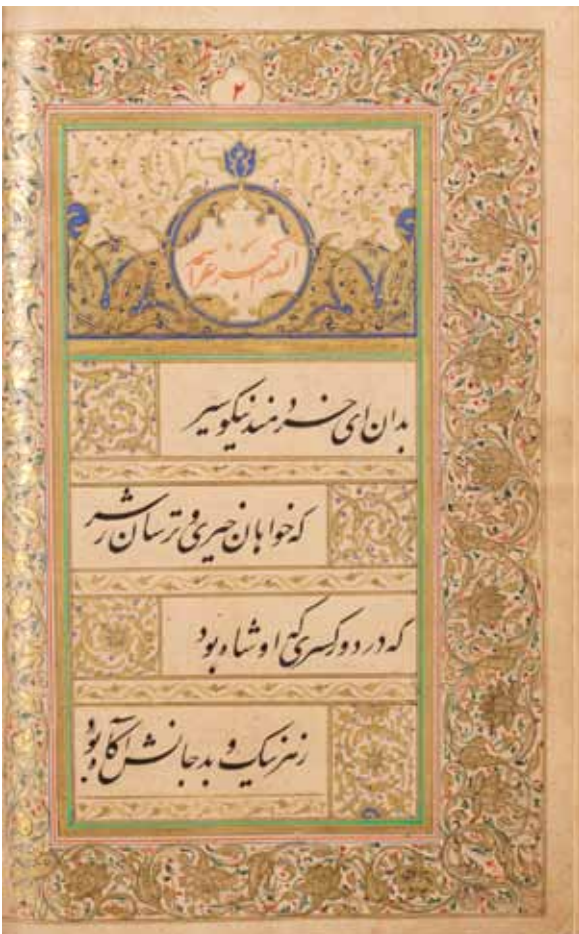 ۲
الله اکبر
بدان ای خردمند نیکو سیر
که خواهان خیری و ترسان ز شر
که در دور کسری که او شاه بود
ز هر نیک و بد جانش آگاه بود